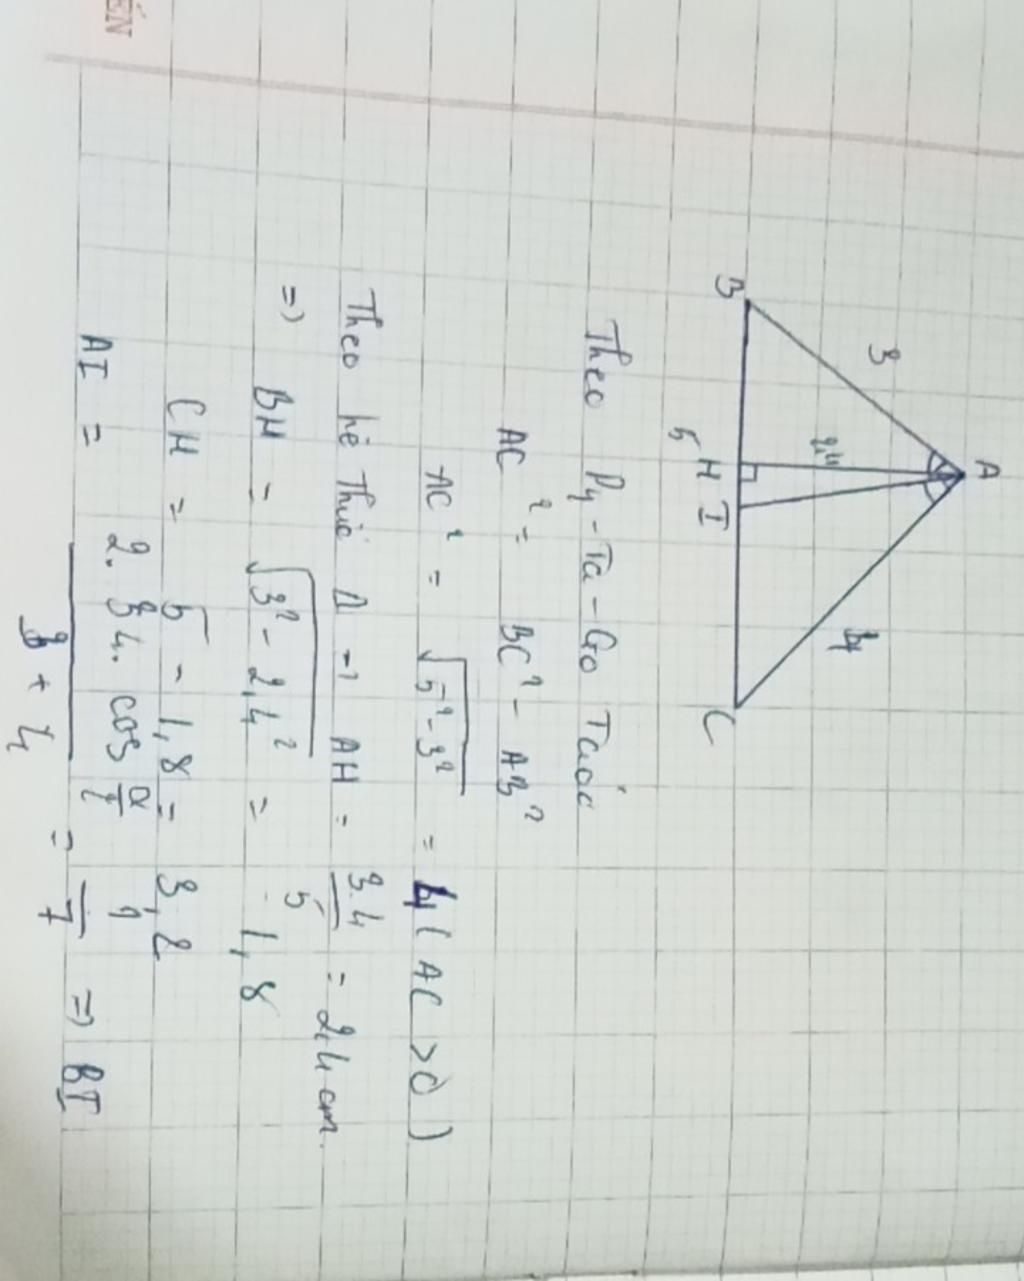 ÉN
A
3
2,4
4
B
H
I
C
5
Theo Py-Ta-Go Ta có
AC² = BC² - AB²
AC² = √5² - 3² = 4 (AC > 0)
Theo hê Thức Δ → AH = 3.4/5 = 2,4 cm.
=> BH = √3² - 2,4² = 1,8
CH = 5 - 1,8 = 3,2
AI = 2. 3 4. cos / 3 + 4 = /7 => BI